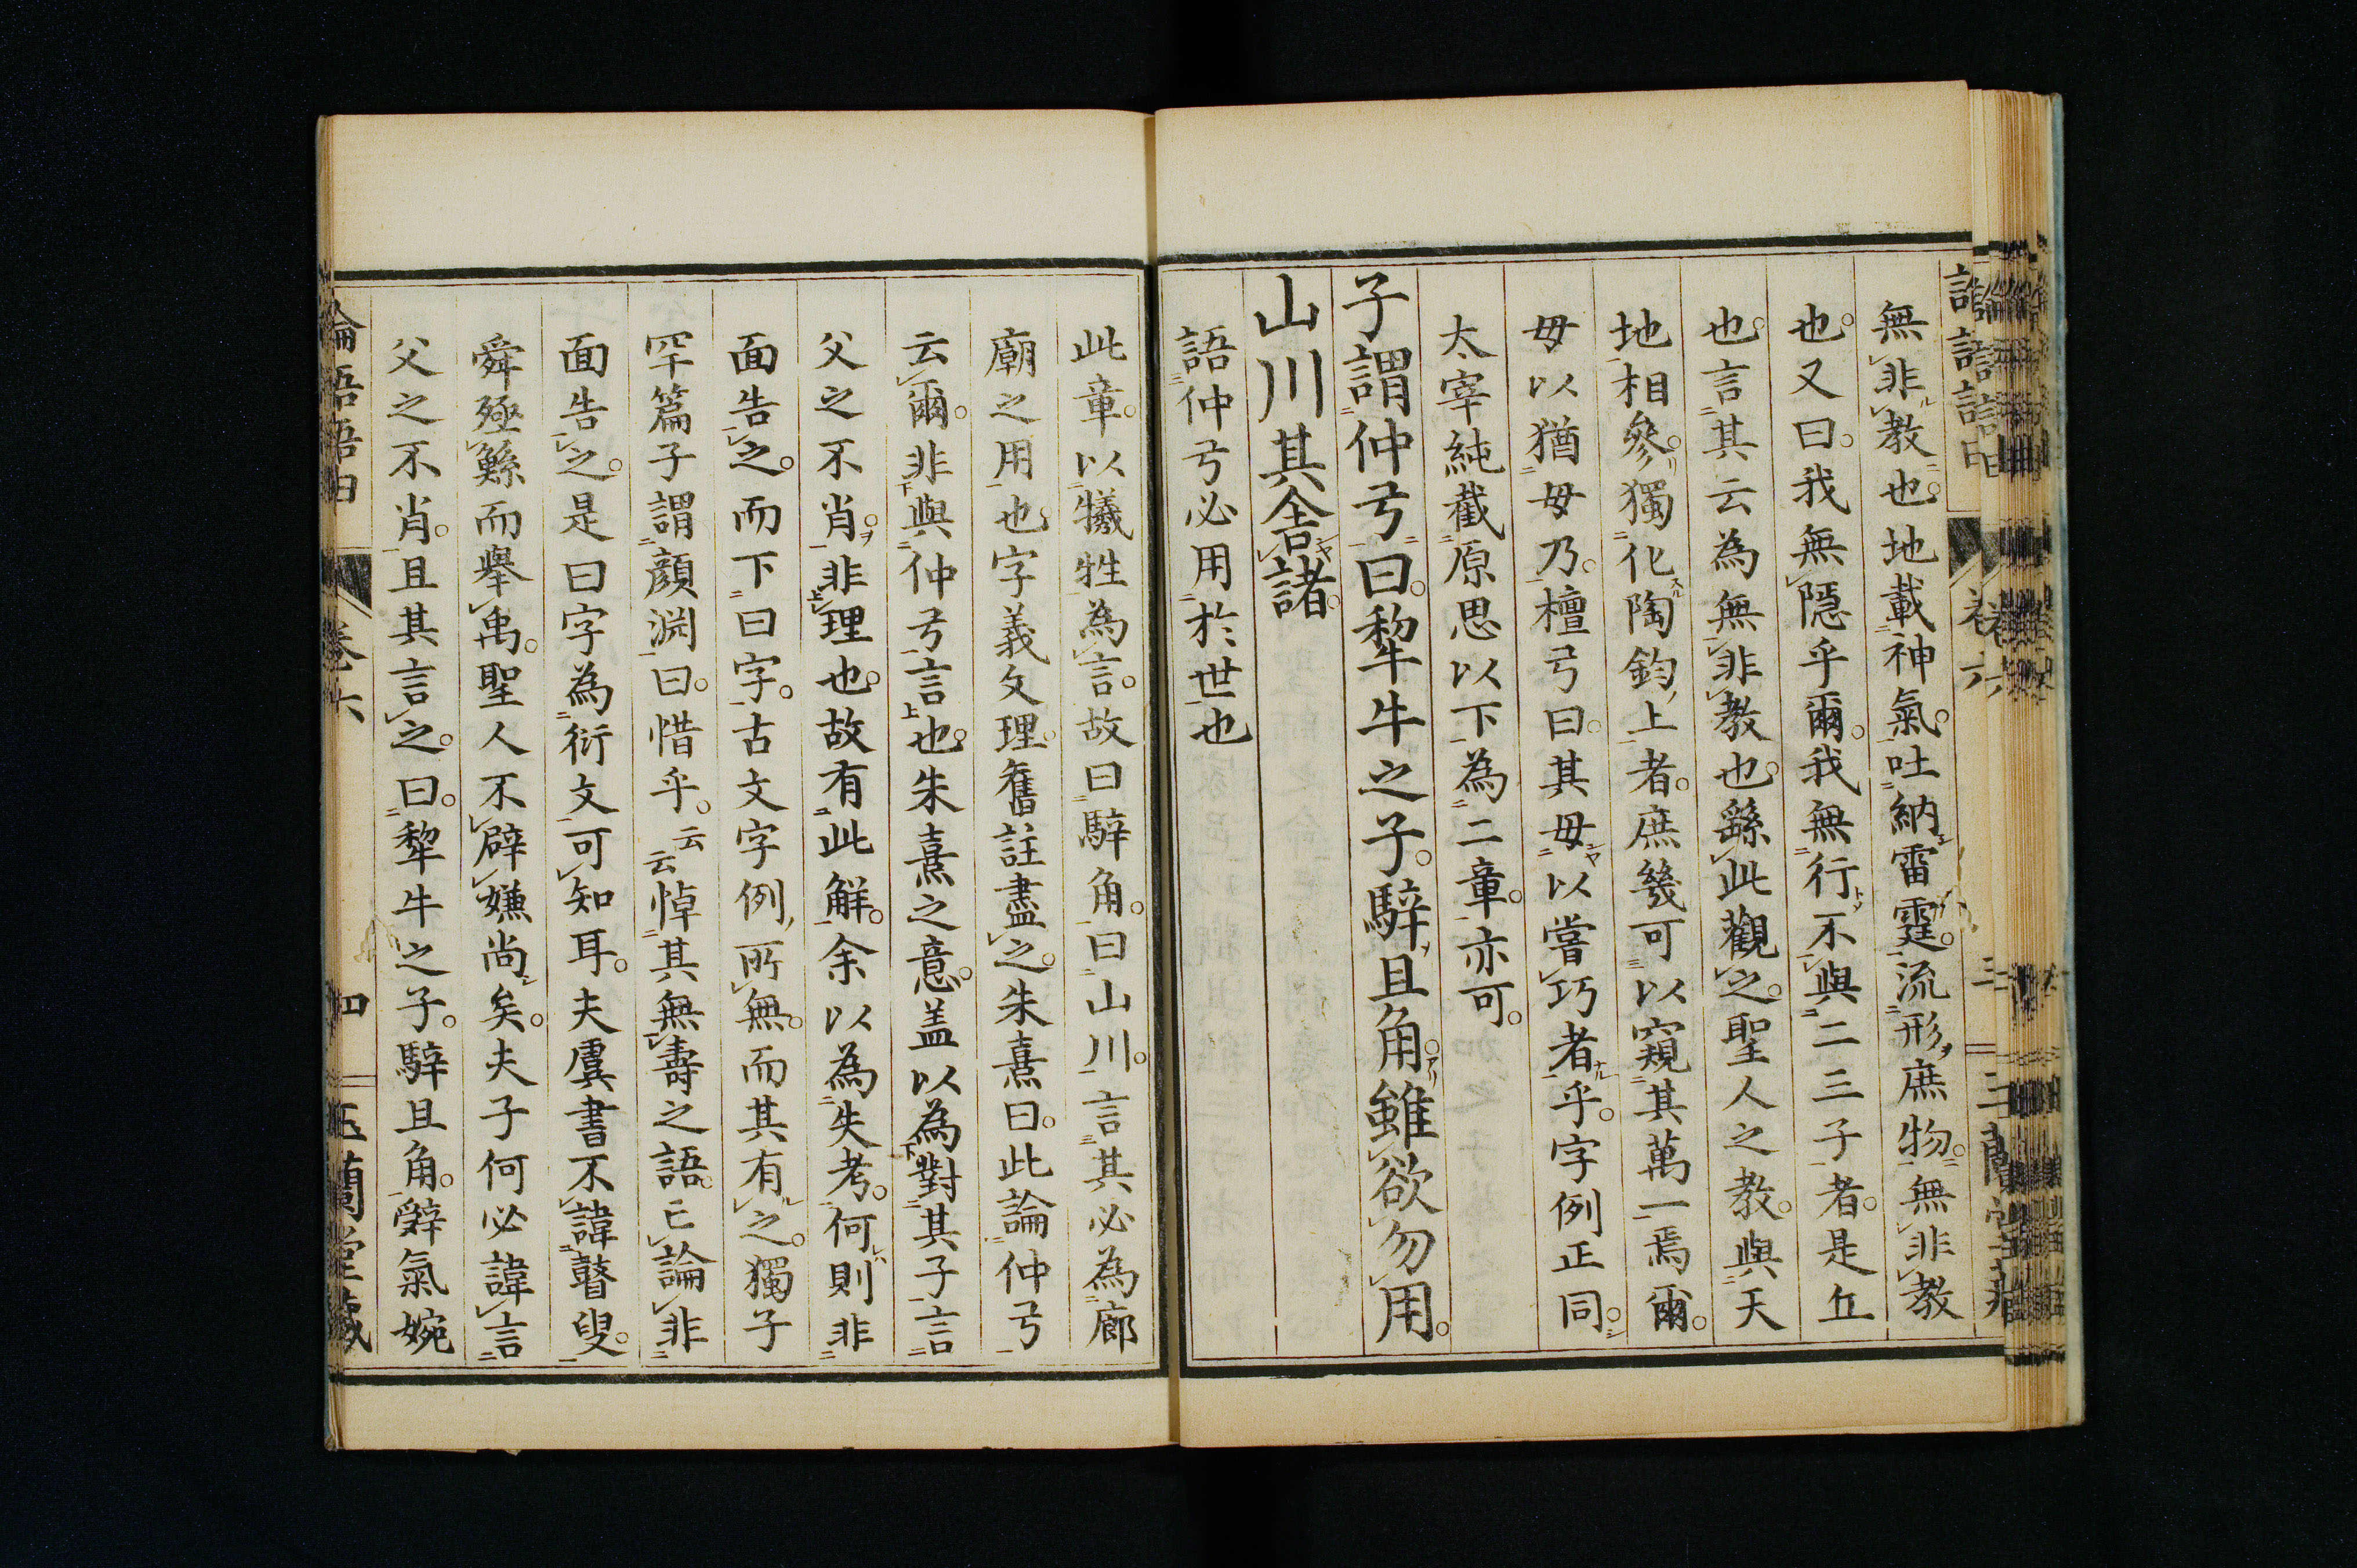 無非教也。地載神氣。吐納雷霆。流形庶物。無非教
也。又曰。我無隱乎爾。我無行不與二三子者。是丘
也。言其云為無非教也。繇此觀之。聖人之教。與天
地相參。獨化陶鈞上者。庶幾可以窺其萬一焉爾。
毋以猶毋乃。檀弓曰。其毋以嘗巧者乎。字例正同。
太宰純截原思以下為二章。亦可。
子謂仲弓曰。犂牛之子。騂且角。雖欲勿用。
山川其舍諸。
語仲弓必用於世也
此章。以犧牲為言。故曰騂角。曰山川。言其必為廊
廟之用也。字義文理。舊註盡之。朱熹曰。此論仲弓
云爾。非與仲弓言也。朱熹之意。盖以為對其子言
父之不肖。非理也。故有此解。余以為失考。何則非
面告之。而下曰字。古文字例所無。而其有之。獨子
罕篇子謂顏淵曰。惜乎。云云悼其無壽之語。已論非
面告之。是曰字為衍文可知耳。夫虞書不諱瞽叟。
舜殛鯀而舉禹。聖人不辟嫌尚矣。夫子何必諱言
父之不肖。且其言之曰。犂牛之子。騂且角。辭氣婉
卷六
四